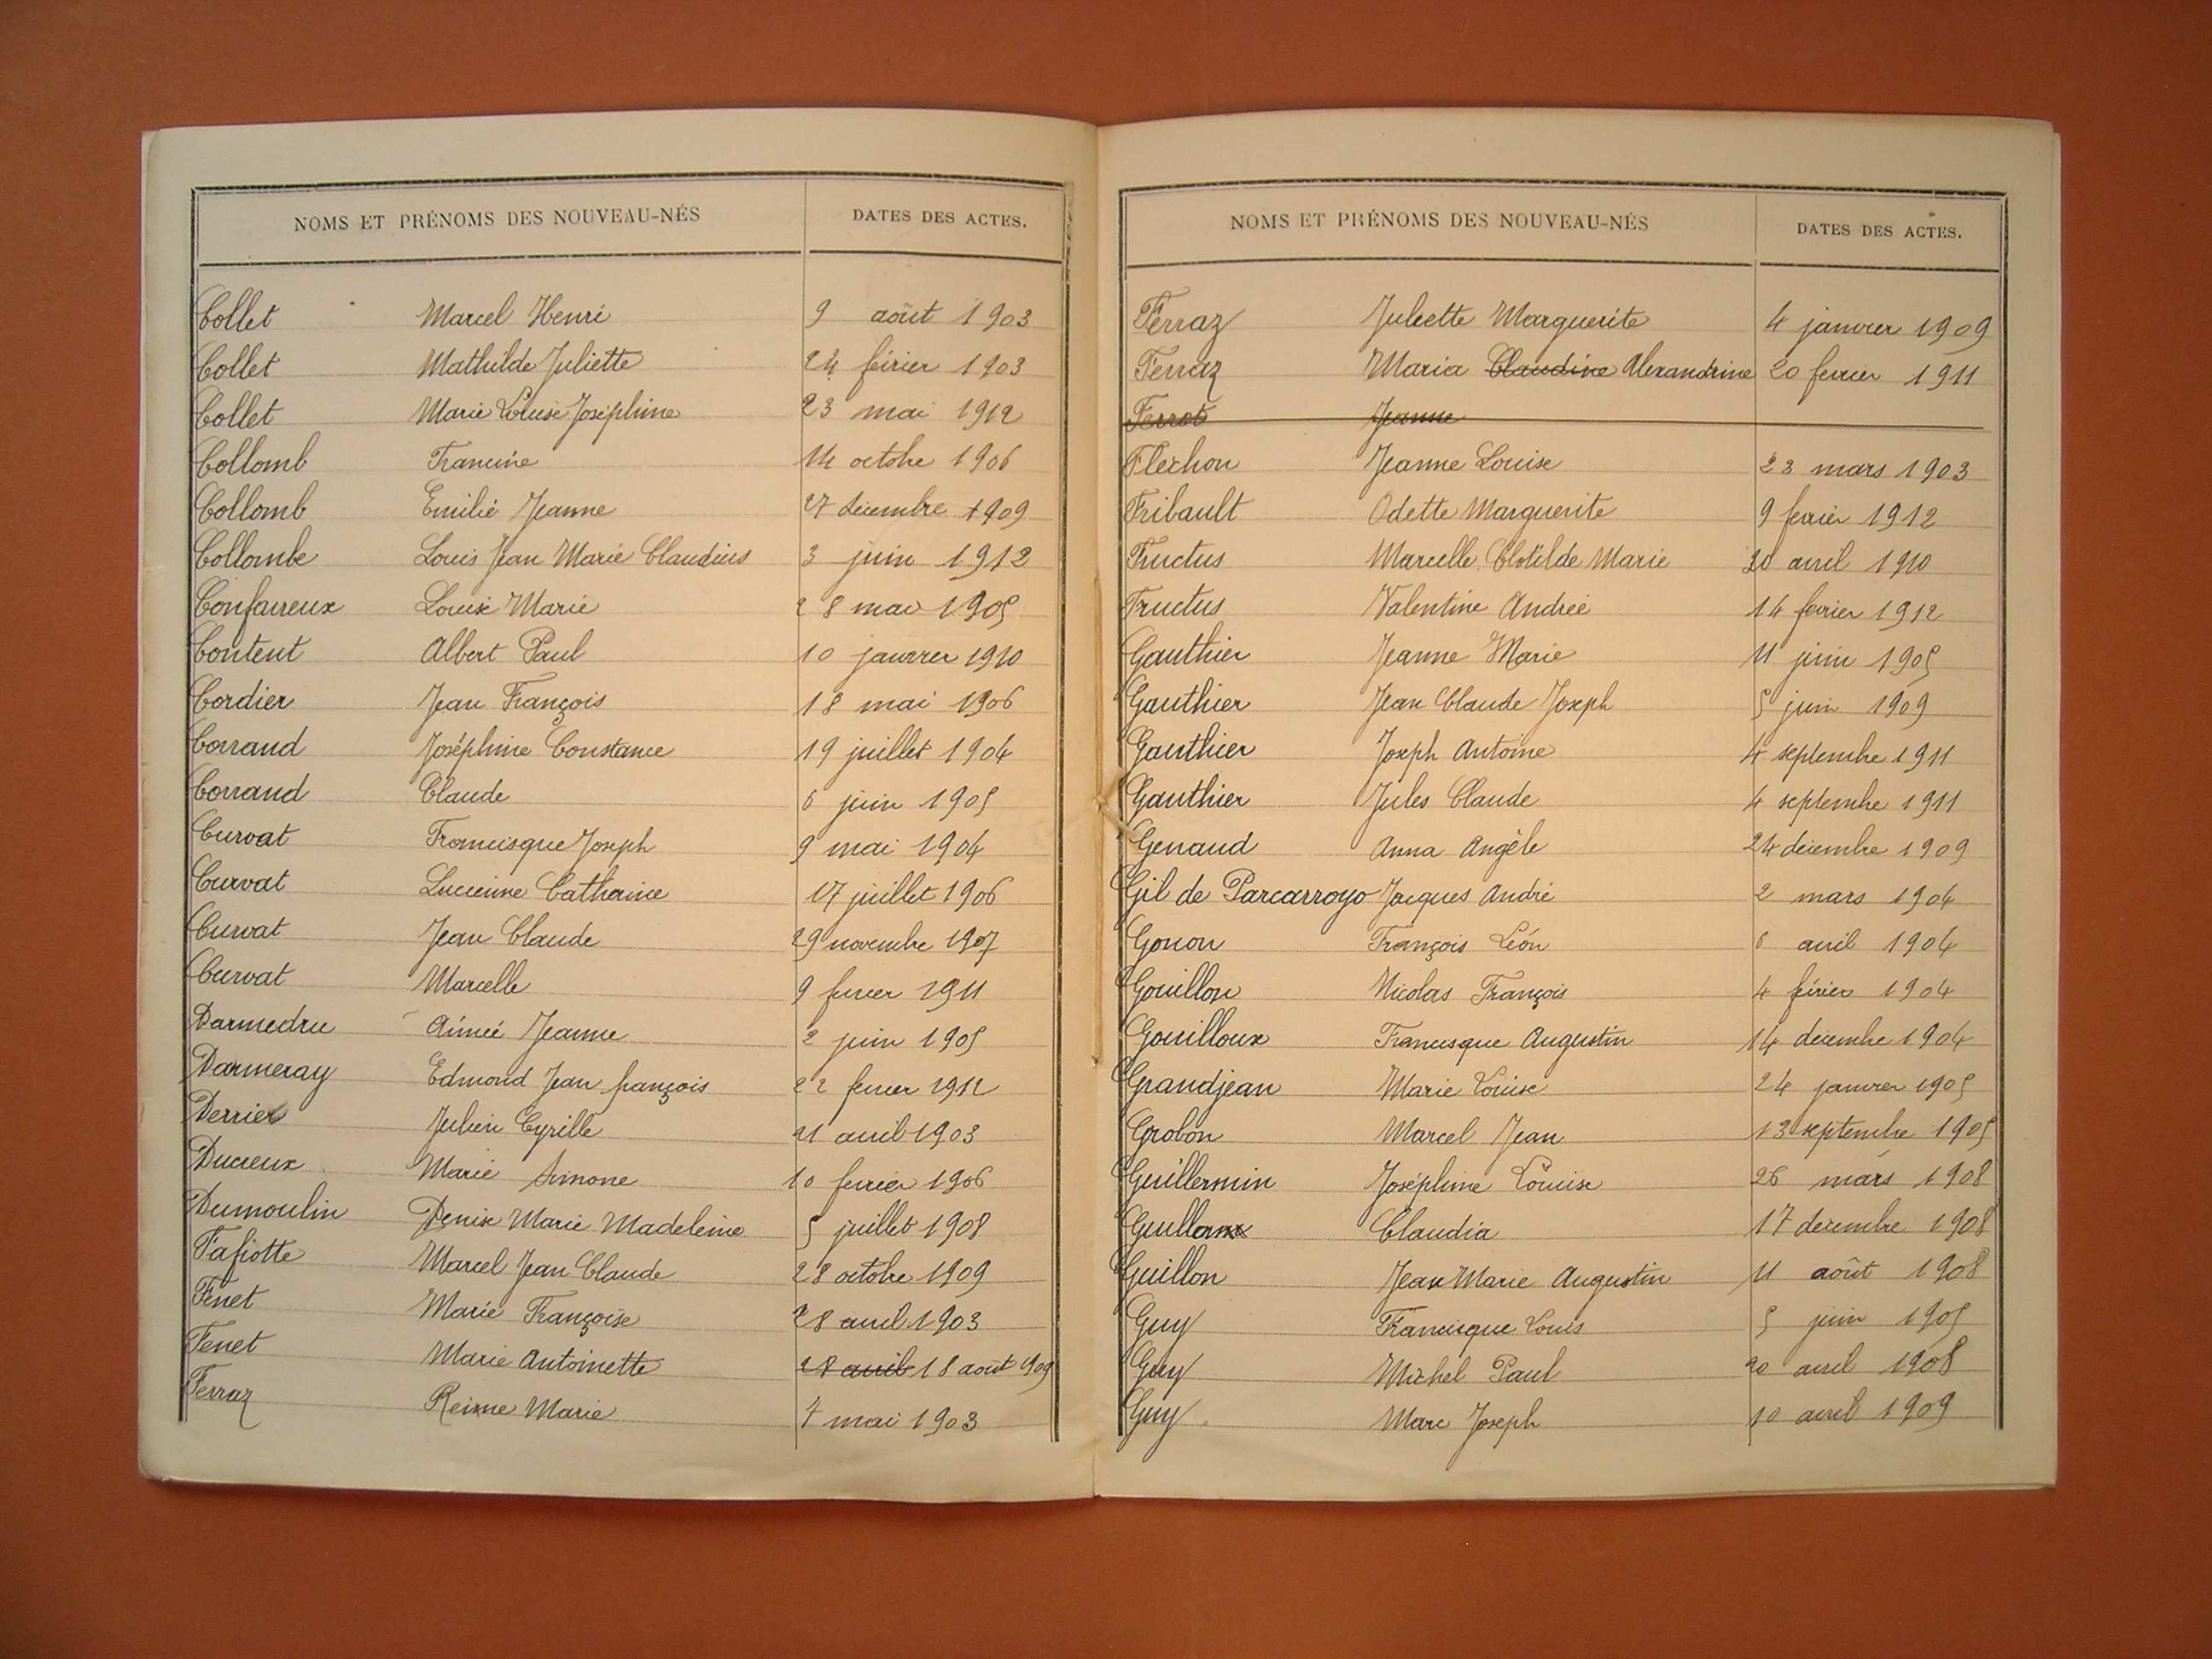 NOMS ET PRÉNOMS DES NOUVEAU-NÉS DATES DES ACTES.
Collet Marcel Henri 9 août 1903
Collet Mathilde Juliette 24 février 1903
Collet Marie Louise Joséphine 23 mai 1912
Collomb Francine 14 octobre 1906
Collomb Emilie Jeanne 27 décembre 1909
Collombe Louis Jean Marie Claudius 3 juin 1912
Confavreux Louise Marie 28 mai 1905
Content Albert Paul 10 janvier 1910
Cordier Jean François 18 mai 1906
Corrand Joséphine Constance 19 juillet 1904
Corrand Claude 6 juin 1905
Curvat Francisque Joseph 9 mai 1904
Curvat Lucienne Catherine 17 juillet 1906
Curvat Jean Claude 29 novembre 1907
Curvat Marcelle 9 fevrier 1911
Darmedru Aimée Jeanne 2 juin 1905
Darmeray Edmond Jean françois 22 fevrier 1912
Derrier Julien Cyrille 21 avril 1903
Ducreux Marie Simone 10 fevrier 1906
Dumoulin Denise Marie Madeleine 5 juillet 1908
Fafiotte Marcel Jean Claude 28 octobre 1909
Fenet Marie Françoise 28 avril 1903
Fenet Marie Antoinette 28 avril 18 août 1909
Ferraz Reine Marie 7 mai 1903
NOMS ET PRÉNOMS DES NOUVEAU-NÉS DATES DES ACTES.
Ferraz Juliette Marguerite 4 janvier 1909
Ferraz Maria Claudine Alexandrine 20 fevrier 1911
Ferrot Jeanne
Fléchon Jeanne Louise 23 mars 1903
Fribault Odette Marguerite 9 fevrier 1912
Fructus Marcelle Clotilde Marie 30 avril 1910
Fructus Valentine Andrée 14 fevrier 1912
Gauthier Jeanne Marie 11 juin 1905
Gauthier Jean Claude Joseph 5 juin 1909
Gauthier Joseph Antoine 4 septembre 1911
Gauthier Jules Claude 4 septembre 1911
Genaud Anna Angèle 24 décembre 1909
Gil de Parcarroyo Jacques André 2 mars 1904
Gonon François Léon 6 avril 1904
Gouillon Nicolas François 4 février 1904
Gouilloux Francisque Augustin 14 décembre 1904
Grandjean Marie Louise 24 janvier 1905
Grobon Marcel Jean 13 septembre 1905
Guillermin Joséphine Louise 26 mars 1908
Claudia 17 decembre 1908
Guillon Jean Marie Augustin 11 août 1908
Guy Francisque Louis 5 juin 1905
Guy Michel Paul 20 avril 1908
Guy Marc Joseph 10 avril 1909